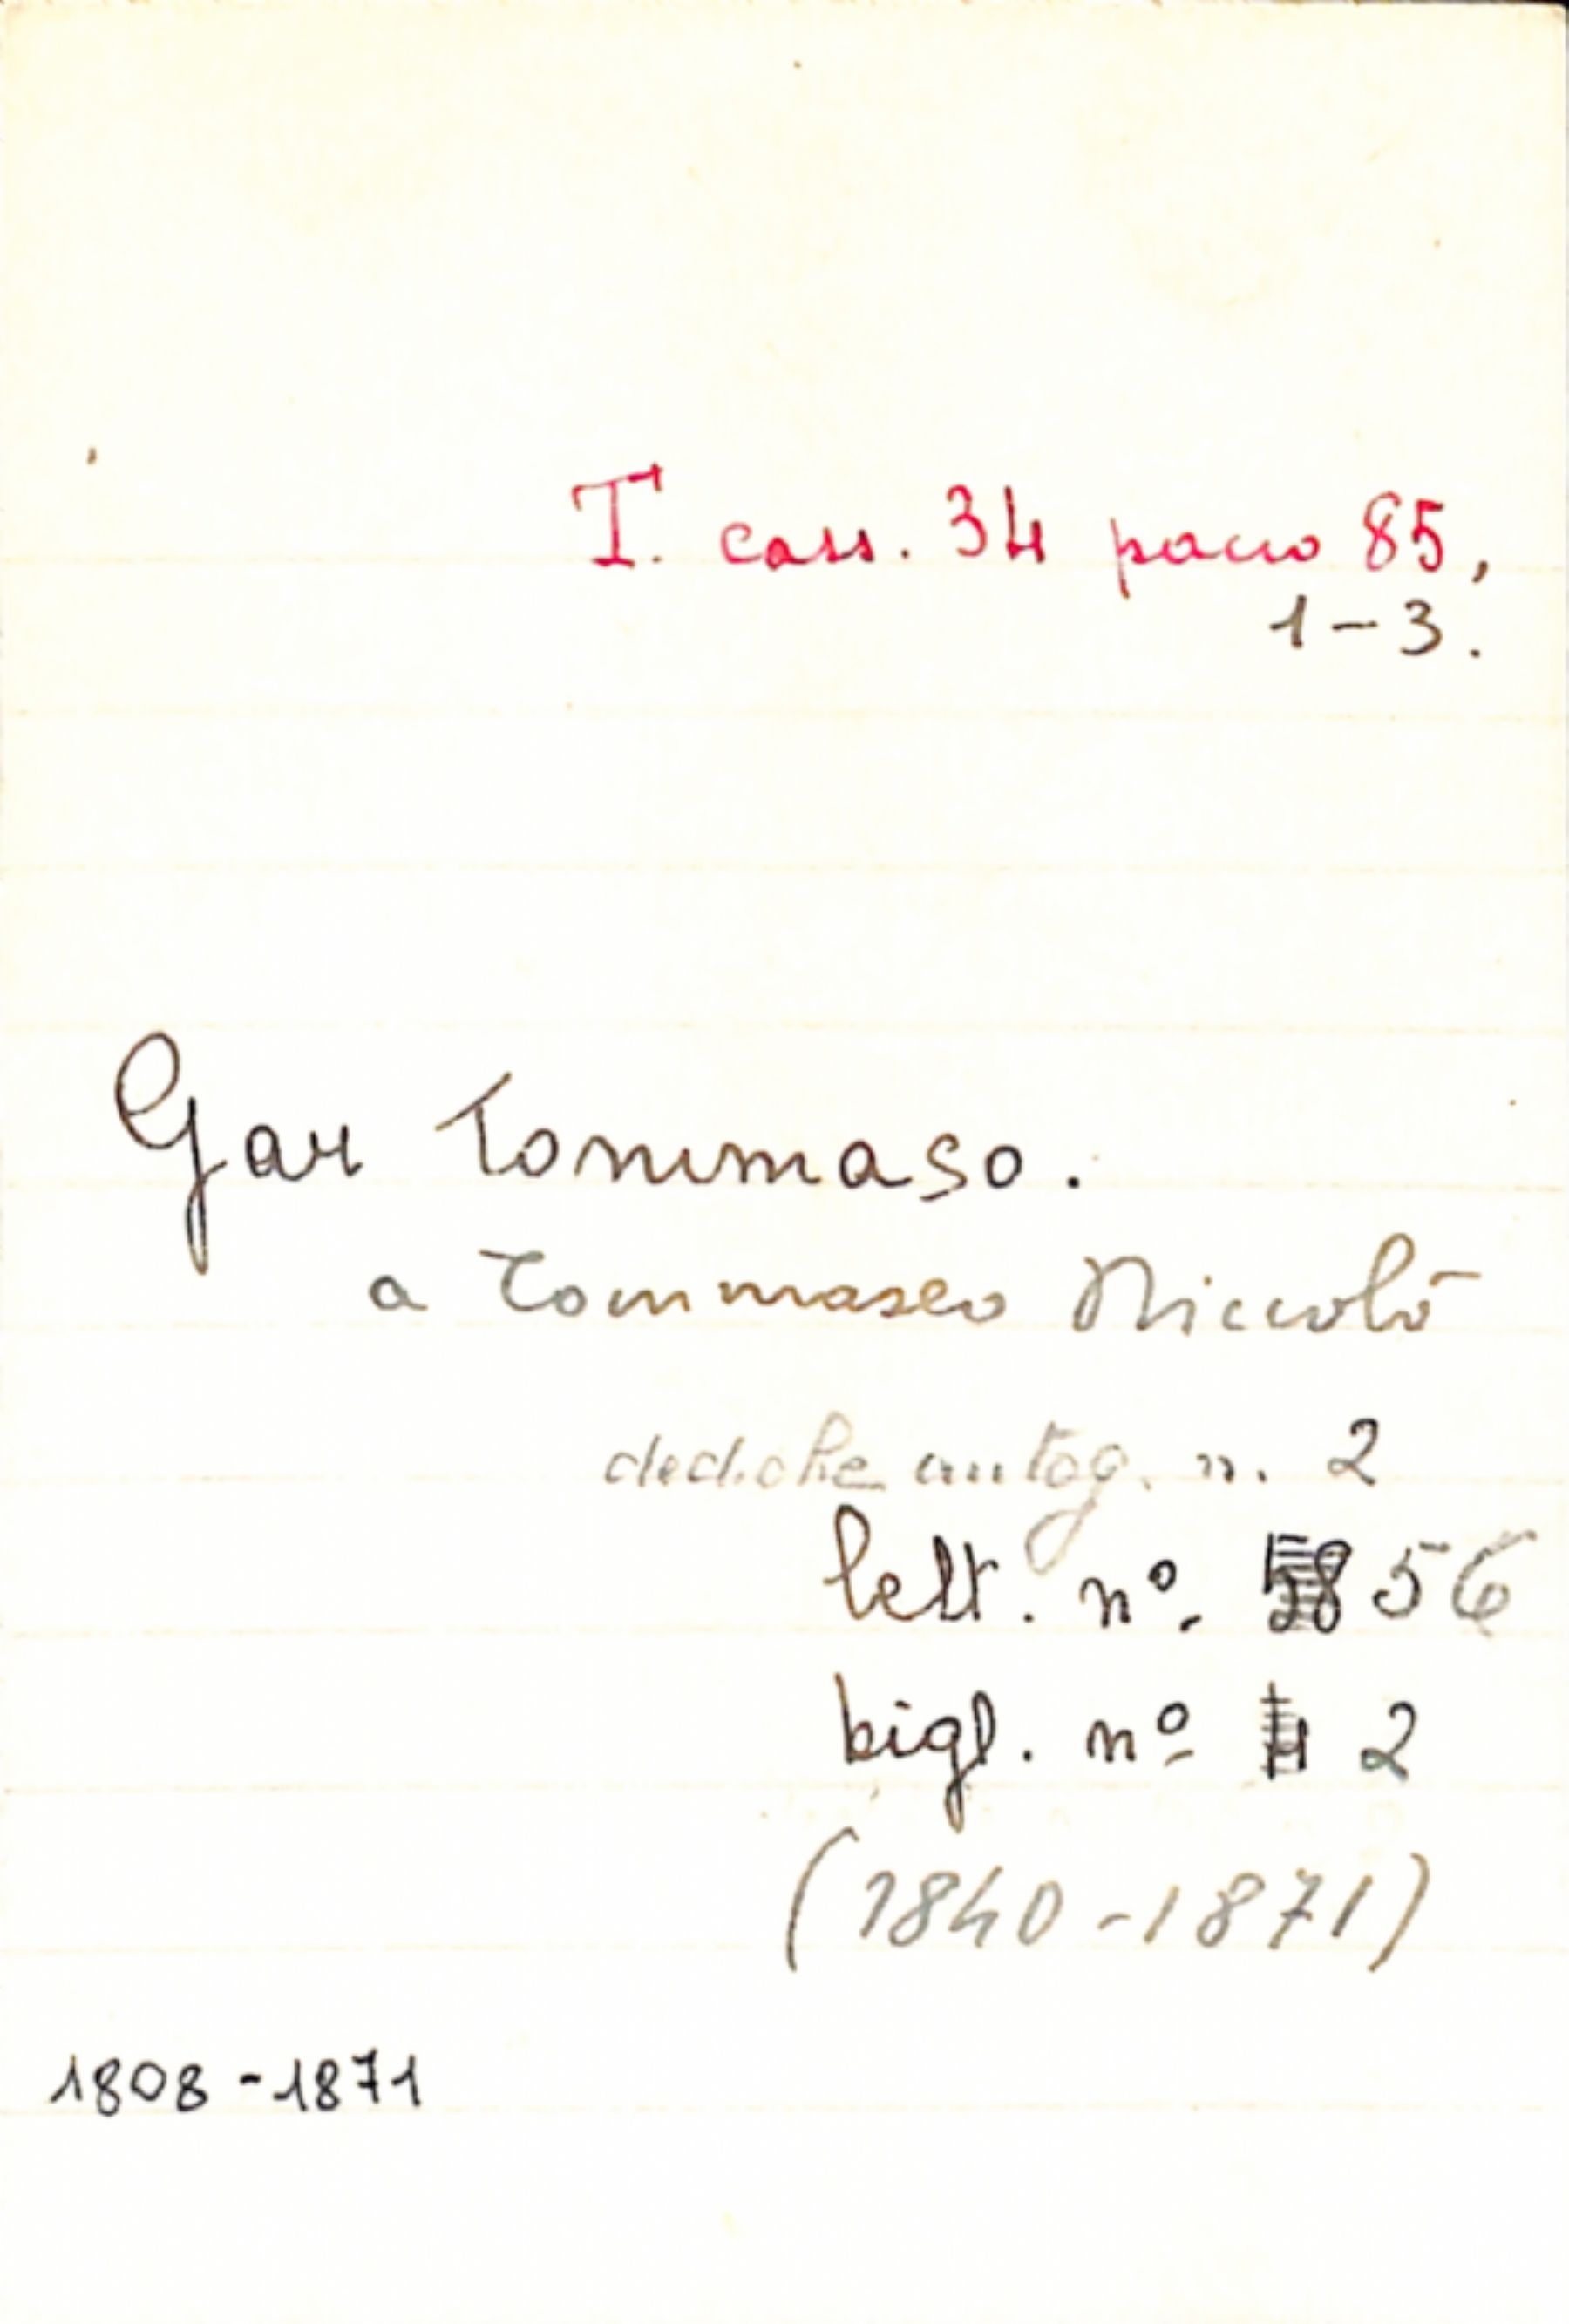 T. cass. 34 pacco 85,
1-3.
Gar Tommaso.
a Tommaseo Niccolò
dediche autog. n. 2
lett. nº. 58 56
bigl. nº 4 2
(1840-1871)
1808-1871